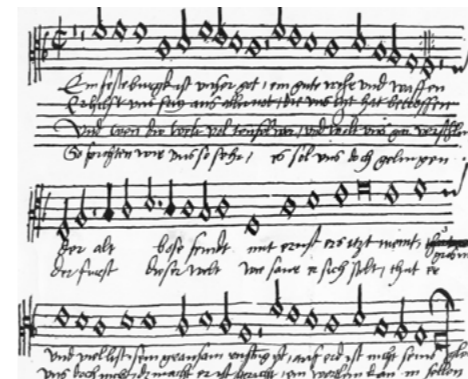 Ein feste burgk ist unser got, ein gute wehr und waffen
Er hilfft uns frey aus aller not, die uns itzt hat betroffen
Und wen die welt vol teuffel wer, und wolt uns gar verschlin
So furchten wir uns so sehr, es sol uns doch gelingen
der alt bose feindt mit ernst ers itzt meint,
der furst dieser welt wie saur er sich stelt, that er
und viel list sein grausam rustung ist, auf erd ist nicht seins glei
uns doch nicht, der macht er ist gericht, ein wortlein kan in fellen